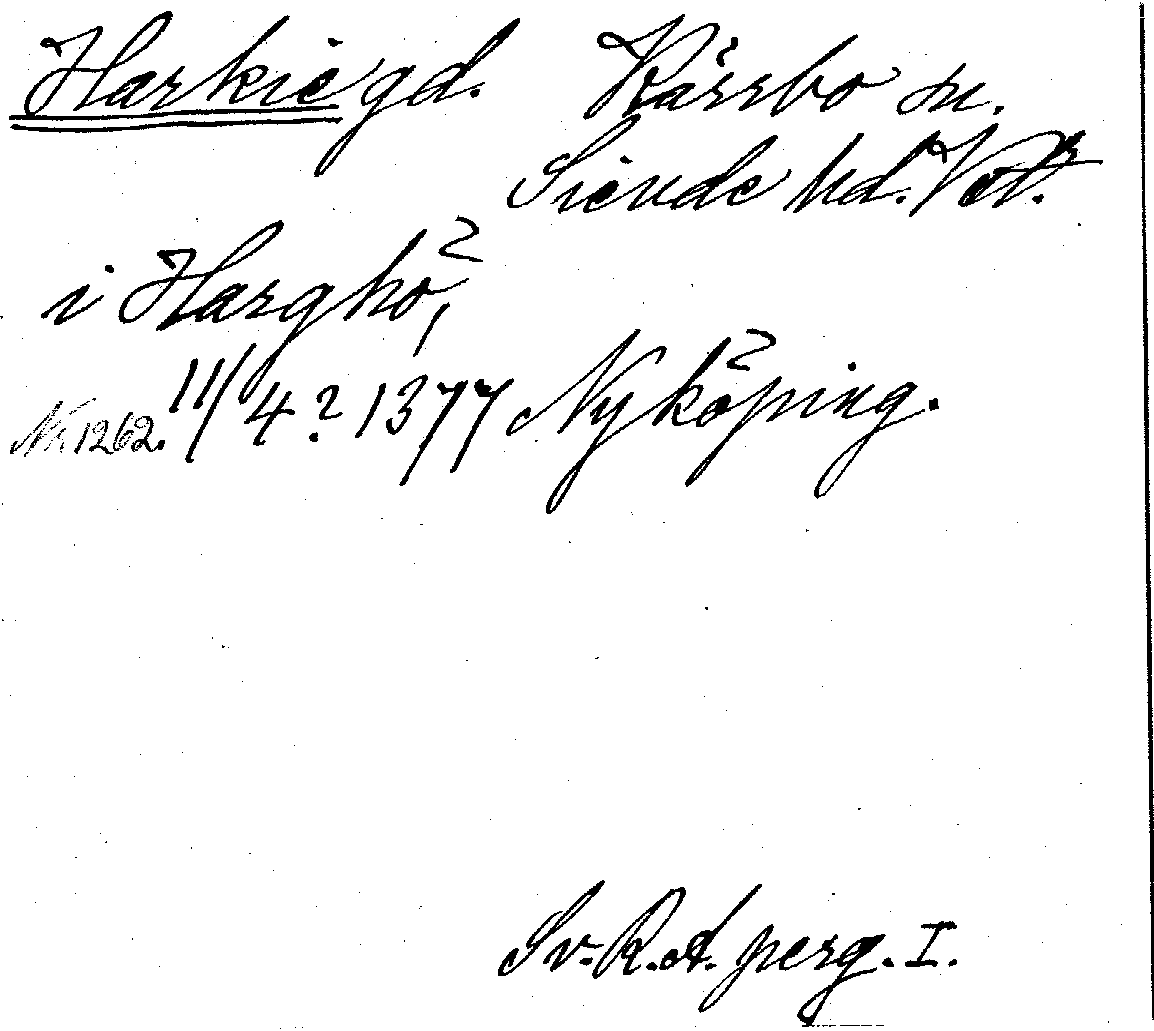 Harkie gd. Kärrbo sn.
Siende hd. Vstm.
i Harghö,
Nr. 1262. 11/4? 1377 Nyköping.
Sv. R.A. perg. I.